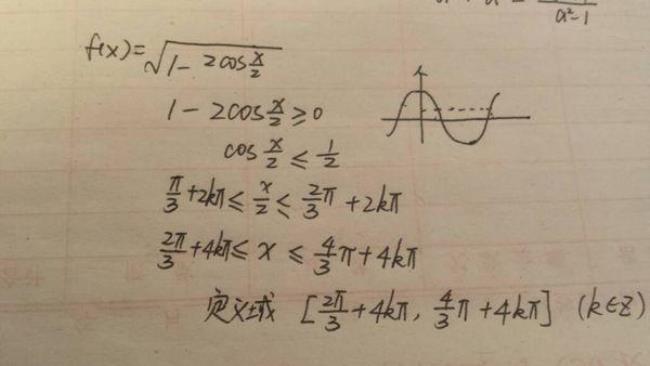 a²-1
f(x)=√(1-2cos x/2)
1-2cos x/2 ≥0
cos x/2 ≤ 1/2
π/3+2kπ≤ x/2 ≤ 2/3π+2kπ
2π/3+4kπ≤ x ≤ 4/3π+4kπ
定义域 [2π/3+4kπ, 4/3π+4kπ] (k∈Z)